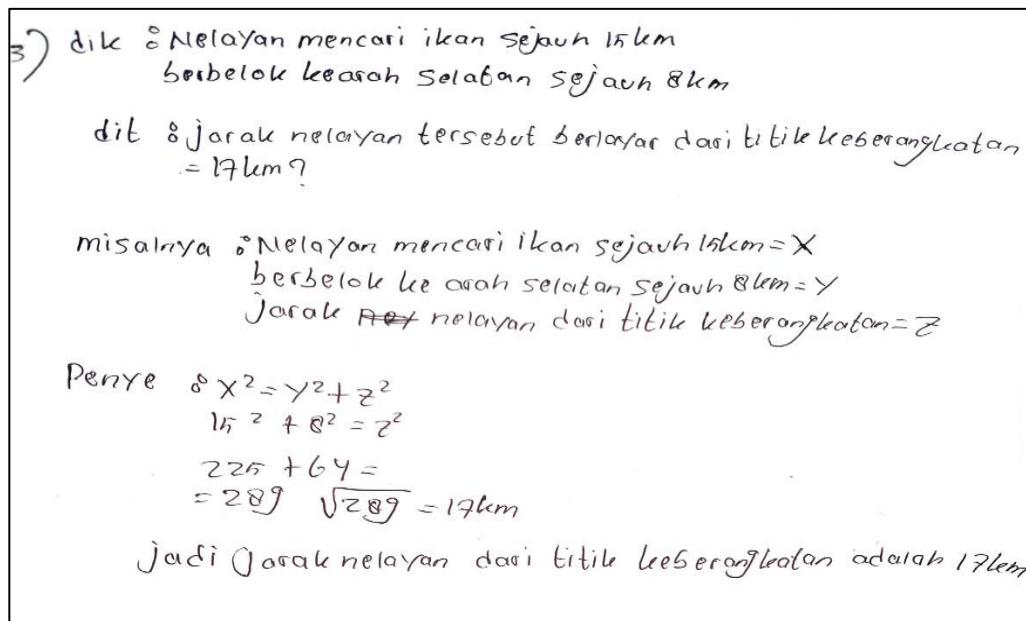 3) dik : Nelayan mencari ikan sejauh 15 km
berbelok kearah selatan sejauh 8 km
dit : jarak nelayan tersebut berlayar dari titik keberangkatan
= 17 km?
misalnya : Nelayan mencari ikan sejauh 15km = X
berbelok ke arah selatan sejauh 8 km = Y
Jarak nelayan dari titik keberangkatan = Z
Penye : X² = Y² + Z²
15² + 8² = Z²
225 + 64 =
= 289 √289 = 17km
jadi jarak nelayan dari titik keberangkatan adalah 17km